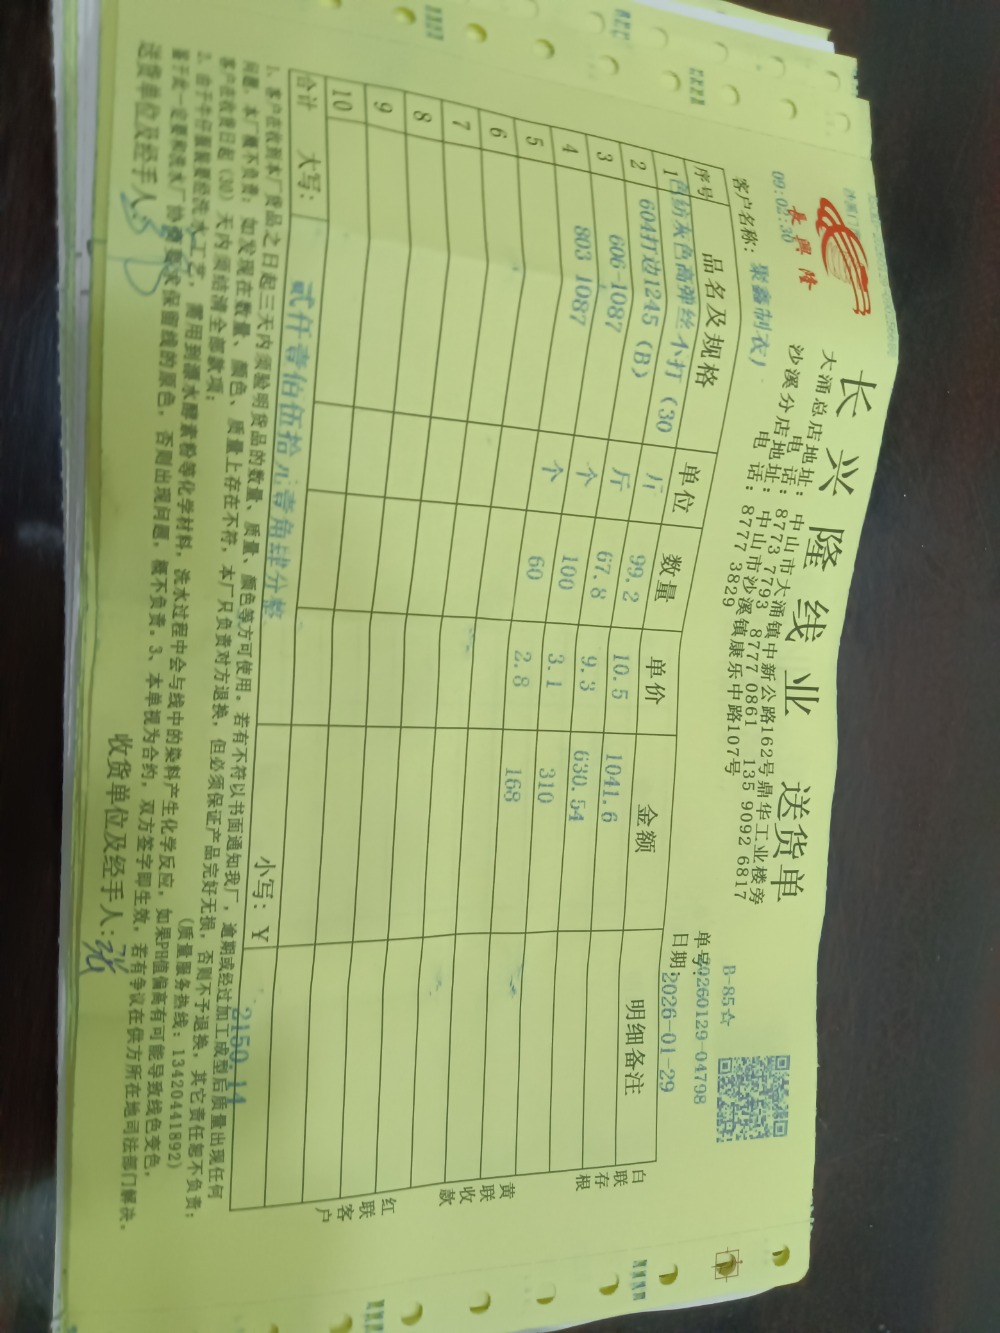 長興隆
长兴隆线业 送货单
大涌总店地址：中山市大涌镇中新公路162号鼎华工业楼旁
电话：8773 7793 8777 0861 135 9092 6817
沙溪分店地址：中山市沙溪镇康乐中路107号
电话：8777 3829
09:02:30
B-85☆
客户名称：聚鑫制衣）
单号：20260129-04798
日期：2026-01-29
序号 品名及规格 单位 数量 单价 金额 明细备注
1 色纺灰色高弹丝小打（30 斤 99.2 10.5 1041.6
2 604打边1245（B） 斤 67.8 9.3 630.54
3 606-1087 个 100 3.1 310
4 803 1087 个 60 2.8 168
5
6
7
8
9
10
合计 大写： 贰仟壹佰伍拾元壹角肆分整 小写：￥ 2150.14
白联存根
黄联收款
红联客户
1、客户在收到本厂货品之日起三天内须验明货品的数量、质量、颜色等方可使用。若有不符以书面通知我厂，逾期或经过加工成型后质量出现任何
问题，本厂概不负责；如发现在数量、颜色、质量上存在不符，本厂只负责对方退换，但必须保证产品完好无损，否则不予退换，其它责任恕不负责；
客户在收货日起（30）天内须结清全部款项；
（质量服务热线：13420441892）
2、由于牛仔服装要经洗水工艺，需用到漂水酵素粉等化学材料，洗水过程中会与线中的染料产生化学反应，如果PH值偏高有可能导致线色变色，
鉴于此一定要和洗水厂协商要求保留线的原色，否则出现问题，概不负责。3、本单视为合约，双方签字即生效，若有争议在供方所在地司法部门解决。
送货单位及经手人：
收货单位及经手人：张